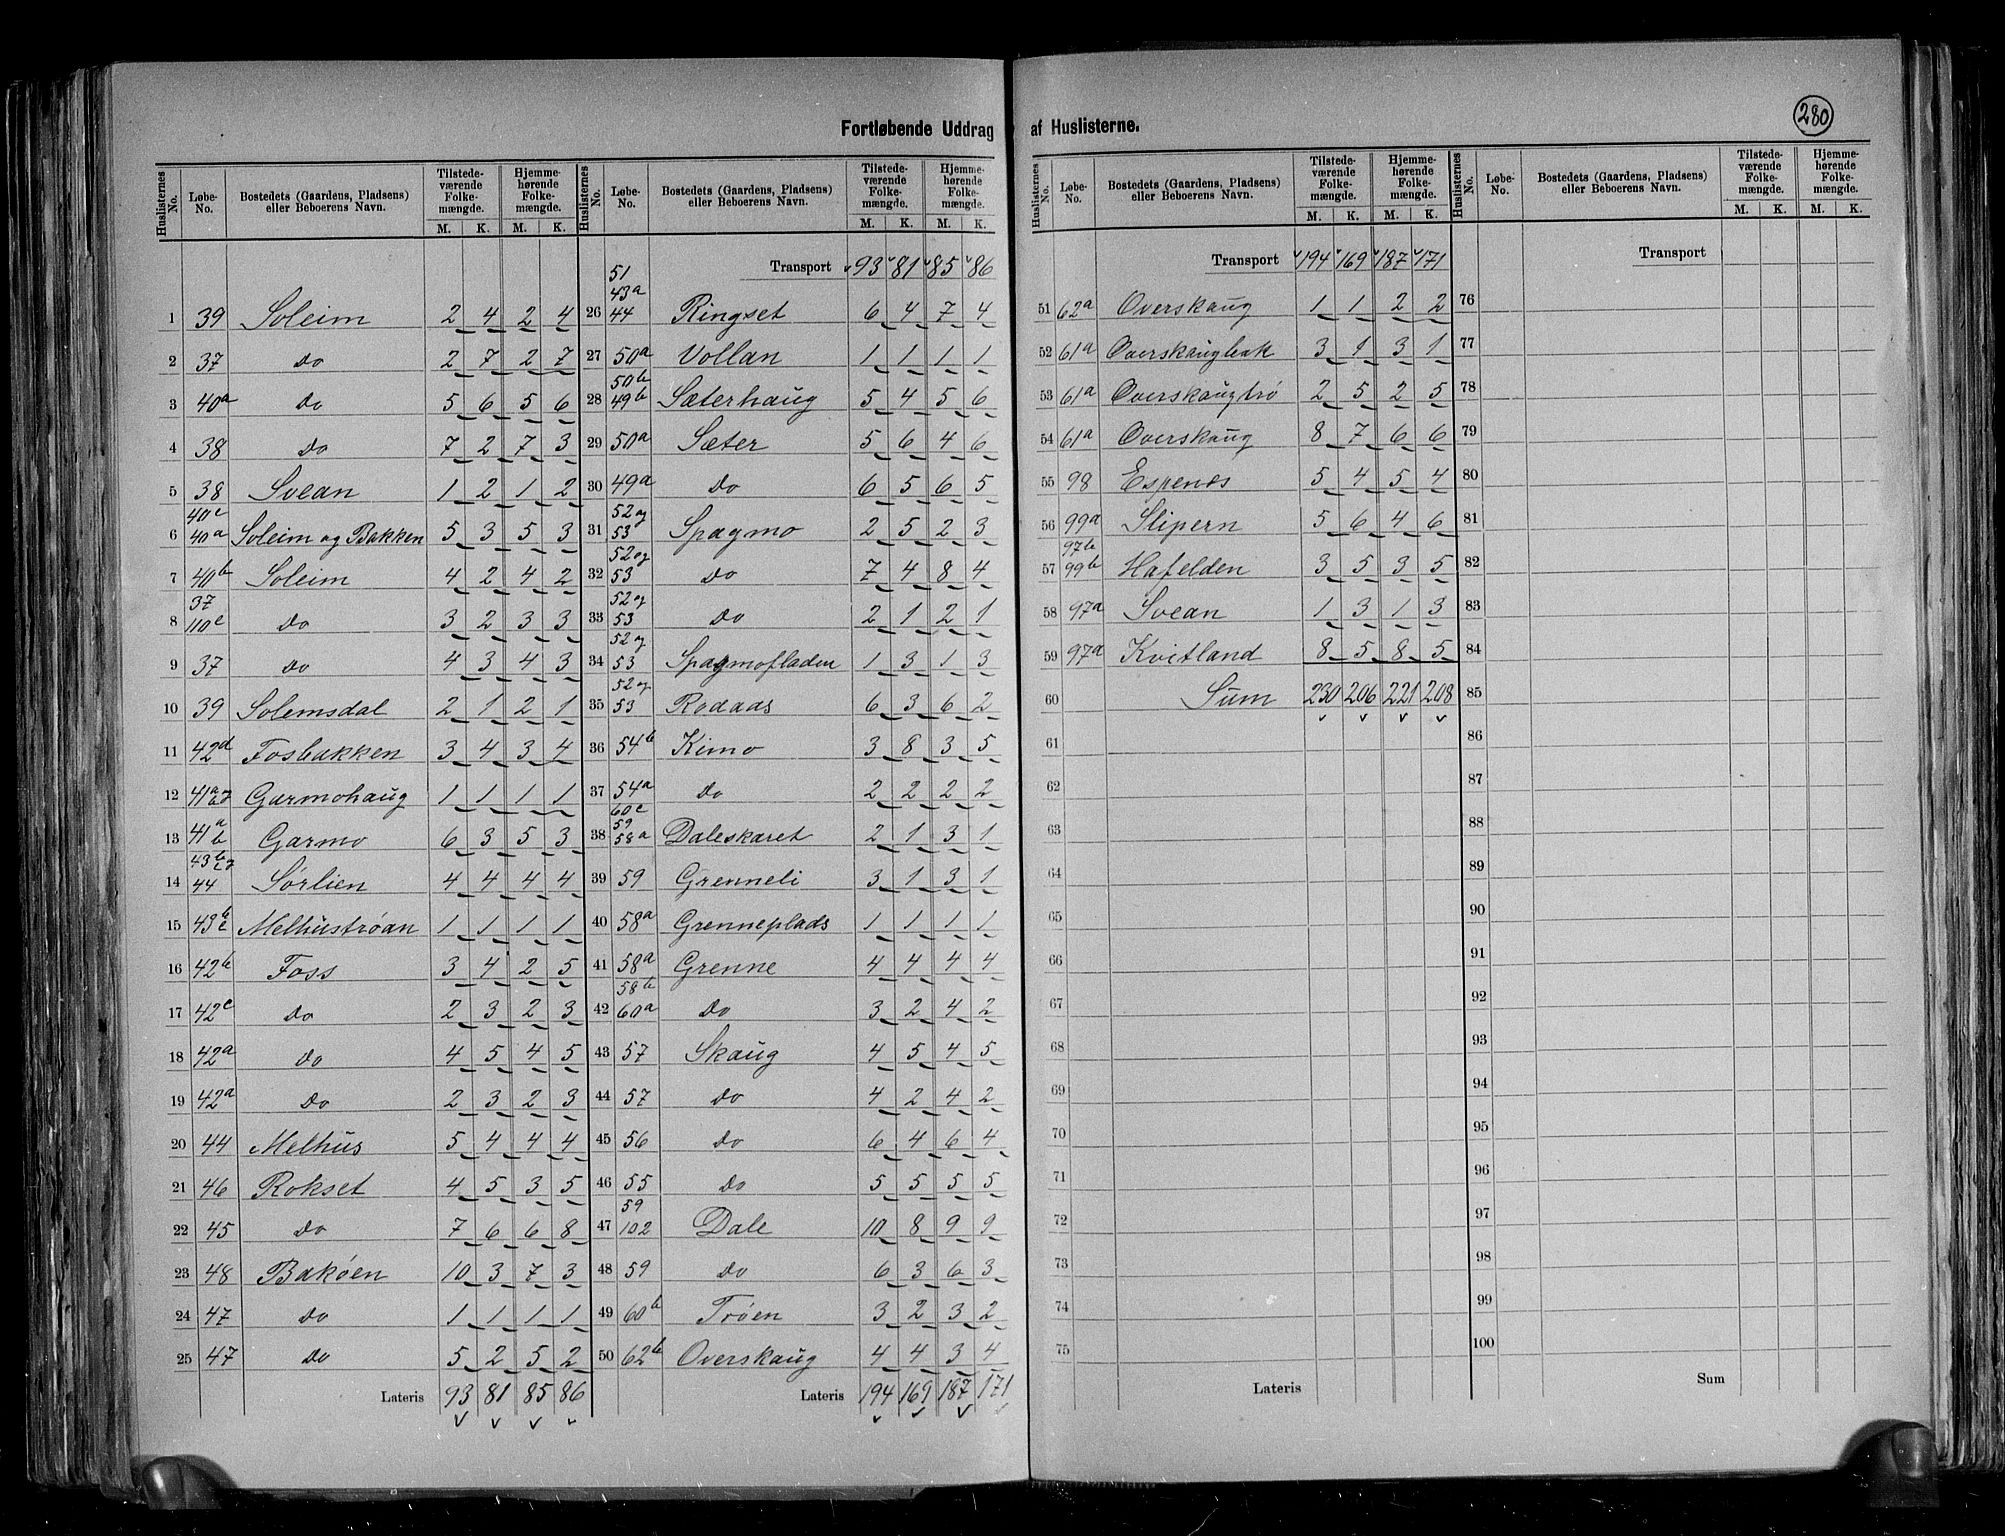 Fortløbende Uddrag af Huslisterne.
280
Huslisternes No. | Løbe-No. | Bostedets (Gaardens, Pladsens) eller Beboerens Navn. | Tilstedeværende Folkemængde. M. K. | Hjemmehørende Folkemængde. M. K.
1 39 Soleim 2 4 2 4
2 37 Do 2 7 2 7
3 40a Do 5 6 5 6
4 38 Do 7 2 7 3
5 38 Svean 1 2 1 2
6 40c 40a Soleim og Bakken 5 3 5 3
7 40b Soleim 4 2 4 2
8 37 110c Do 3 2 3 3
9 37 Do 4 3 4 3
10 39 Solemsdal 2 1 2 1
11 42d Fosbakken 3 4 3 4
12 Garmohaug 1 1 1 1
13 41a b Garmo 6 3 5 3
14 44 Sørlien 4 4 4 4
15 Melhustrøan 1 1 1 1
16 42b Foss 3 4 2 5
17 42c Do 2 3 2 3
18 42a Do 4 5 4 5
19 42a Do 2 3 2 3
20 44 Melhus 5 4 4 4
21 46 Rokset 4 5 3 5
22 45 Do 7 6 6 8
23 48 Bakøen 10 3 7 3
24 47 Do 1 1 1 1
25 47 Do 5 2 5 2
Lateris 93 81 85 86
Huslisternes No. | Løbe-No. | Bostedets (Gaardens, Pladsens) eller Beboerens Navn. | Tilstedeværende Folkemængde. M. K. | Hjemmehørende Folkemængde. M. K.
Transport 93 81 85 86
26 51 43a 44 Ringset 6 4 7 4
27 50a Vollan 1 1 1 1
28 50b 49b Sæterhaug 5 4 5 6
29 50a Sæter 5 6 4 6
30 49a Do 6 5 6 5
31 52 og 53 Spagmo 2 5 2 3
32 52 og 53 Do 7 4 8 4
33 52 og 53 Do 2 1 2 1
34 52 og 53 Spagmofladen 1 3 1 3
35 52 og 53 Rodaas 6 3 6 2
36 54b Kimo 3 8 3 5
37 54a Do 2 2 2 2
38 60c 59 58a Daleskaret 2 1 3 1
39 59 Grenneli 3 1 3 1
40 58a Grenneplads 1 1 1 1
41 58a Grenne 4 4 4 4
42 58b 60a Do 3 2 4 2
43 57 Skaug 4 5 4 5
44 57 Do 4 2 4 2
45 56 Do 6 4 6 4
46 55 Do 5 5 5 5
47 59 102 Dale 10 8 9 9
48 59 Do 6 3 6 3
49 60b Trøen 3 2 3 2
50 62b Overskaug 4 4 3 4
Lateris 194 169 187 171
Huslisternes No. | Løbe-No. | Bostedets (Gaardens, Pladsens) eller Beboerens Navn. | Tilstedeværende Folkemængde. M. K. | Hjemmehørende Folkemængde. M. K.
Transport 194 169 187 171
51 62a Overskaug 1 1 2 2
52 61a Overskaugbak 3 1 3 1
53 61a Overskaugtrø 2 5 2 5
54 61a Overskaug 8 7 6 6
55 98 Espenes 5 4 5 4
56 99a Slipern 5 6 4 6
57 97b 99b Hafelden 3 5 3 5
58 97a Svean 1 3 1 3
59 97a Kvitland 8 5 8 5
60 Sum 230 206 221 208
61
62
63
64
65
66
67
68
69
70
71
72
73
74
75
Lateris
Huslisternes No. | Løbe-No. | Bostedets (Gaardens, Pladsens) eller Beboerens Navn. | Tilstedeværende Folkemængde. M. K. | Hjemmehørende Folkemængde. M. K.
Transport
76
77
78
79
80
81
82
83
84
85
86
87
88
89
90
91
92
93
94
95
96
97
98
99
100
Sum